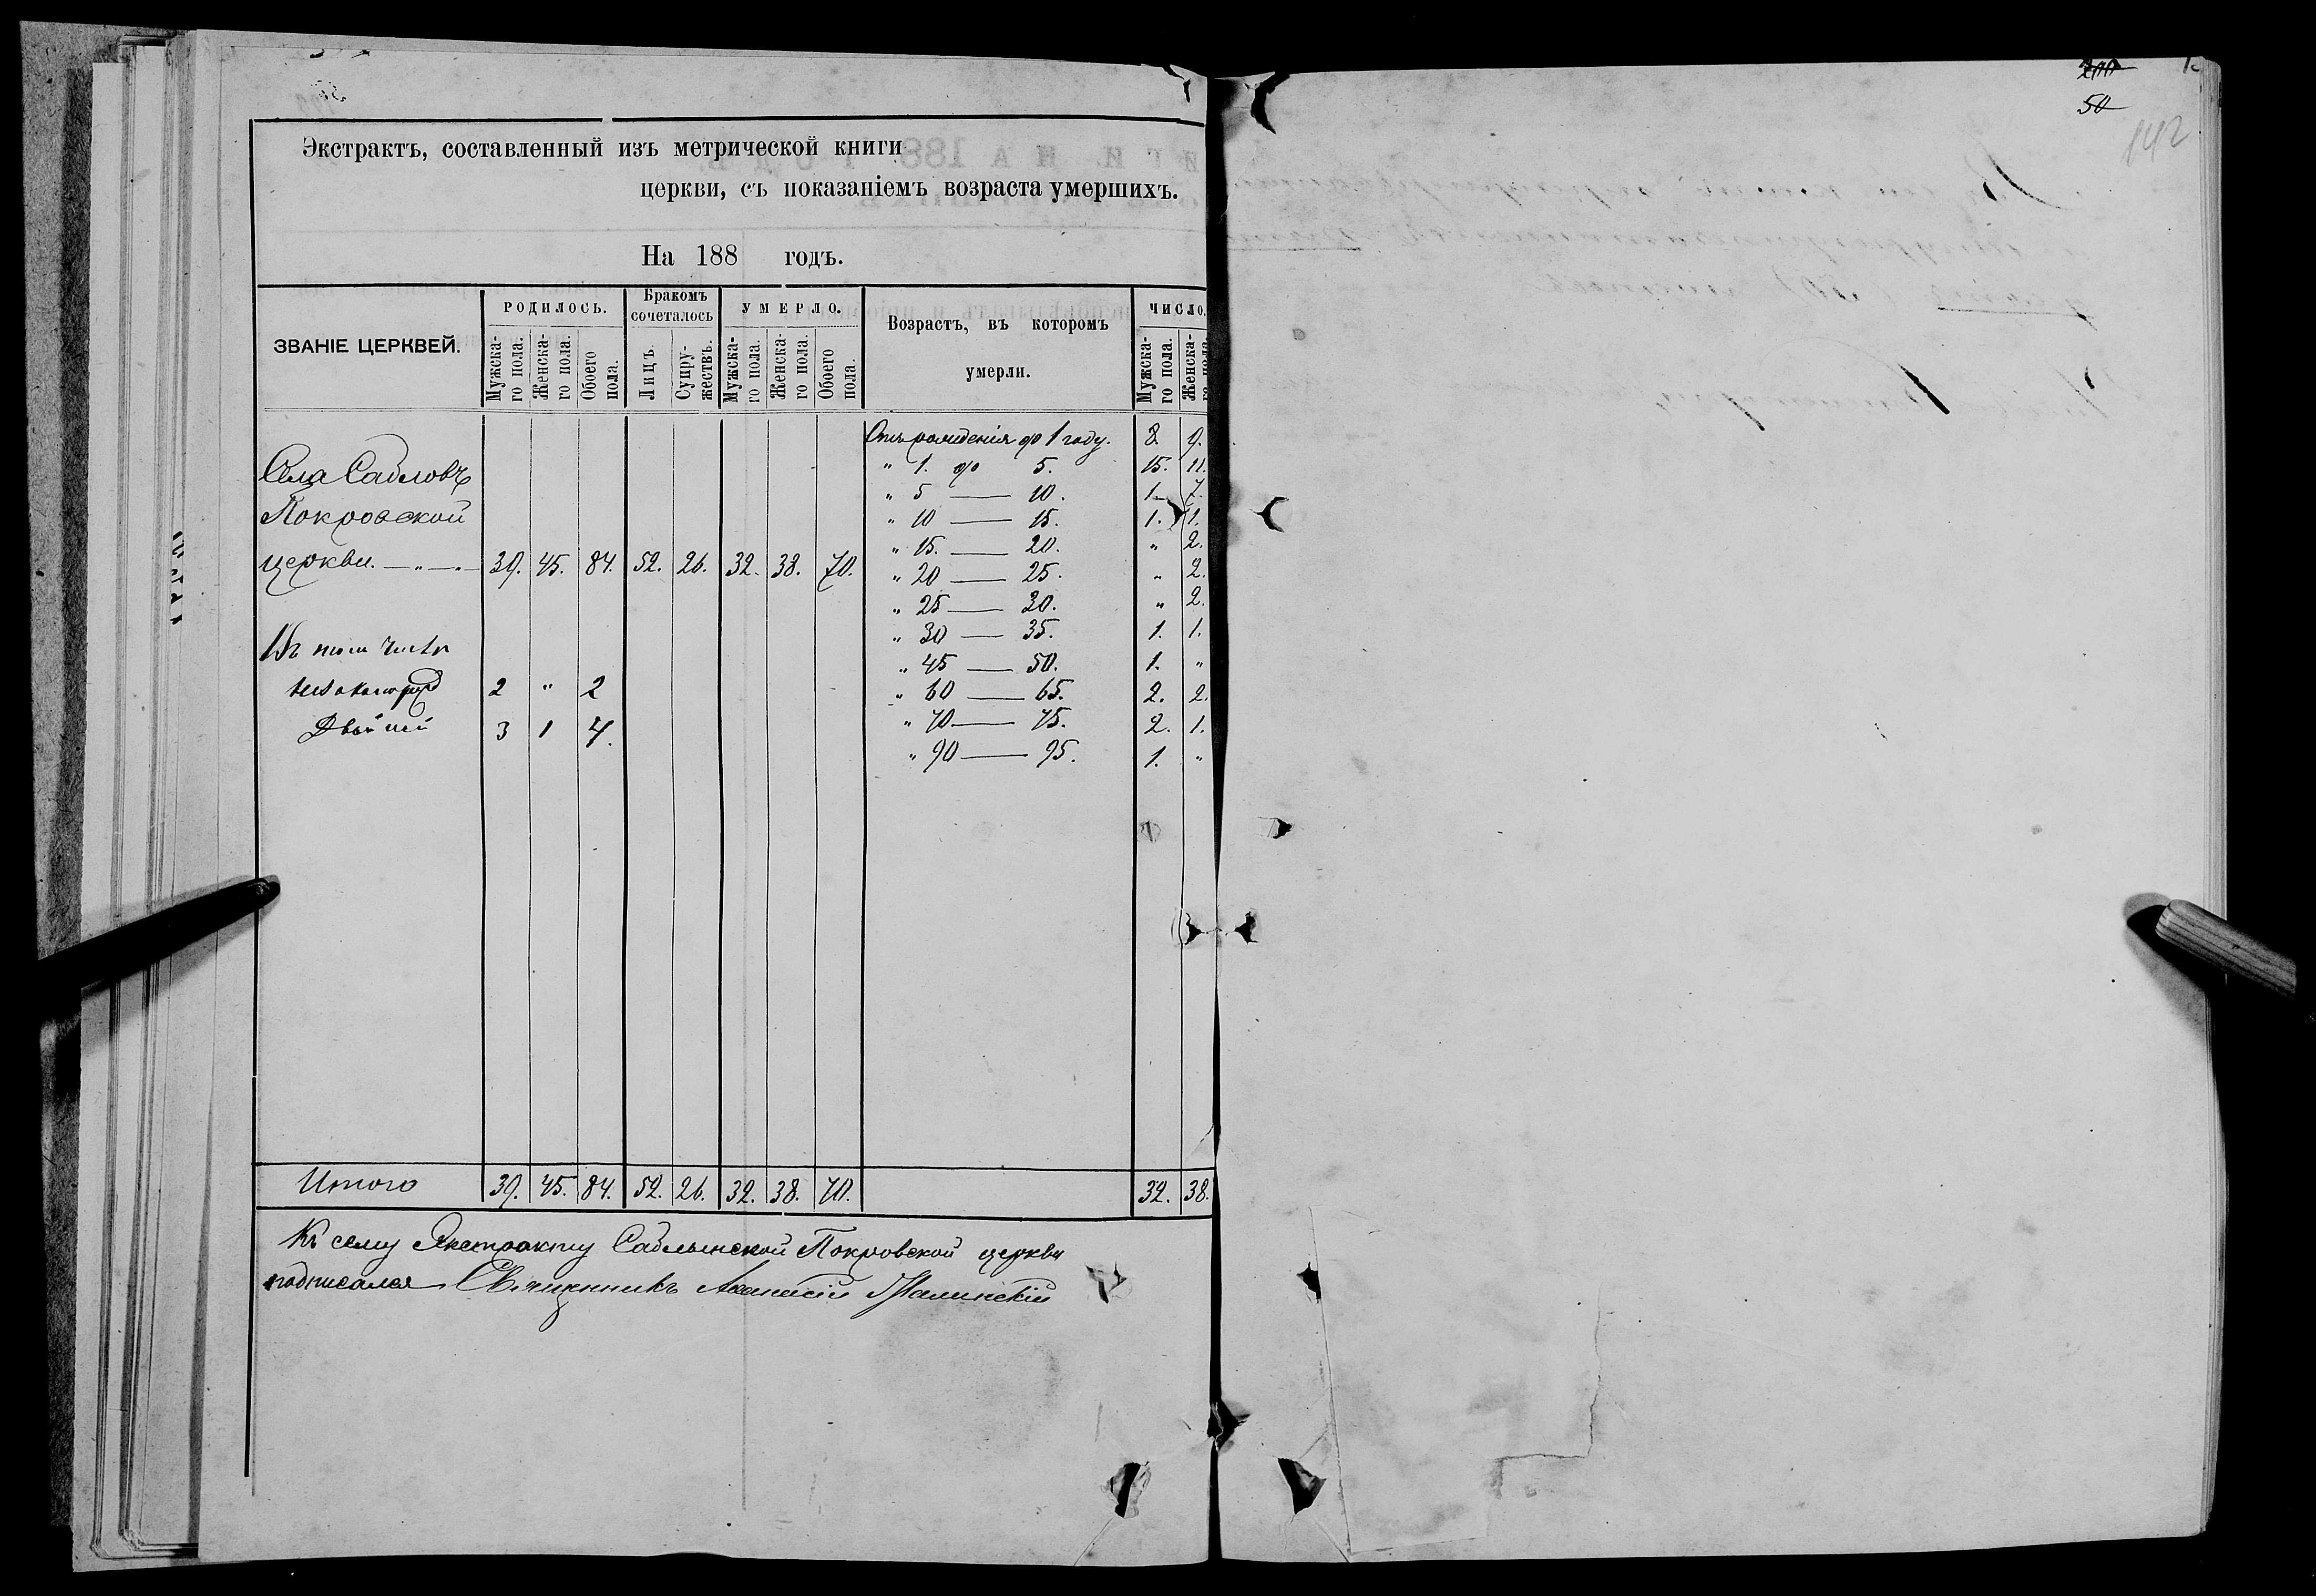 Экстрактъ, составленный изъ метрической книги
церкви, съ показаніемъ возраста умершихъ.
На 188 годъ.
ЗВАНІЕ ЦЕРКВЕЙ.
РОДИЛОСЬ.
Мужска-го пола.
Женска-го пола.
Обоего пола.
Бракомъ сочеталось
Лицъ.
Супру-жествъ.
УМЕРЛО.
Мужска-го пола.
Женска-го пола.
Обоего пола.
Возрастъ, въ которомъ
умерли.
ЧИСЛО.
Мужска-го пола.
Женска-го пола.
Отъ рожденія до 1 году. 8. 9.
Села Сабловъ
" 1. до 5. 15. 11.
" 5 — 10. 1. 7.
Покровской
" 10 — 15. 1. 1.
" 15. — 20. " 2.
церкви. — „ — „ — 39. 45. 84. 52. 26. 32. 38. 70.
" 20 — 25. " 2.
" 25 — 30. " 2.
" 30 — 35. 1. 1.
Въ томъ числѣ
" 45 — 50. 1. "
2 " 2
" 60 — 65. 2. 2.
Двойней 3 1 4.
" 70 — 75. 2. 1.
" 90 — 95. 1. "
Итого 39. 45. 84. 52. 26. 32. 38. 70. 32. 38.
Къ сему Экстракту Саблынской Покровской церкви
подписался Священникъ Аѳанасій
200
50
142